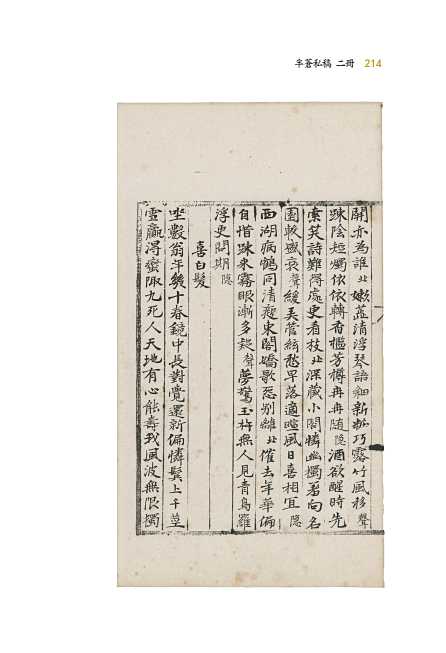 半蒼私稿 二冊 214
開亦為誰北嫩蘂清浮琴語細新梢巧露竹風移聲
疎陰短燭依依轉香檻芳樽冉冉隨隱酒欲醒時先
索笑詩難得處更看枝北深藏小閣憐幽獨著向名
園較盛衰聲緩美管絃愁早落適晴風日喜相宜隱
西湖病鶴同清瘦東閣嬌歌惡別離北催去年華偏
自惜疎來霧眼漸多疑聲夢驚玉杵無人見青鳥羅
浮更問期隱
喜白髮
坐數翁年幾十春鏡中長對覺還新偏憐鬢上千莖
雪贏得蠻陬九死人天地有心能壽我風波無限獨